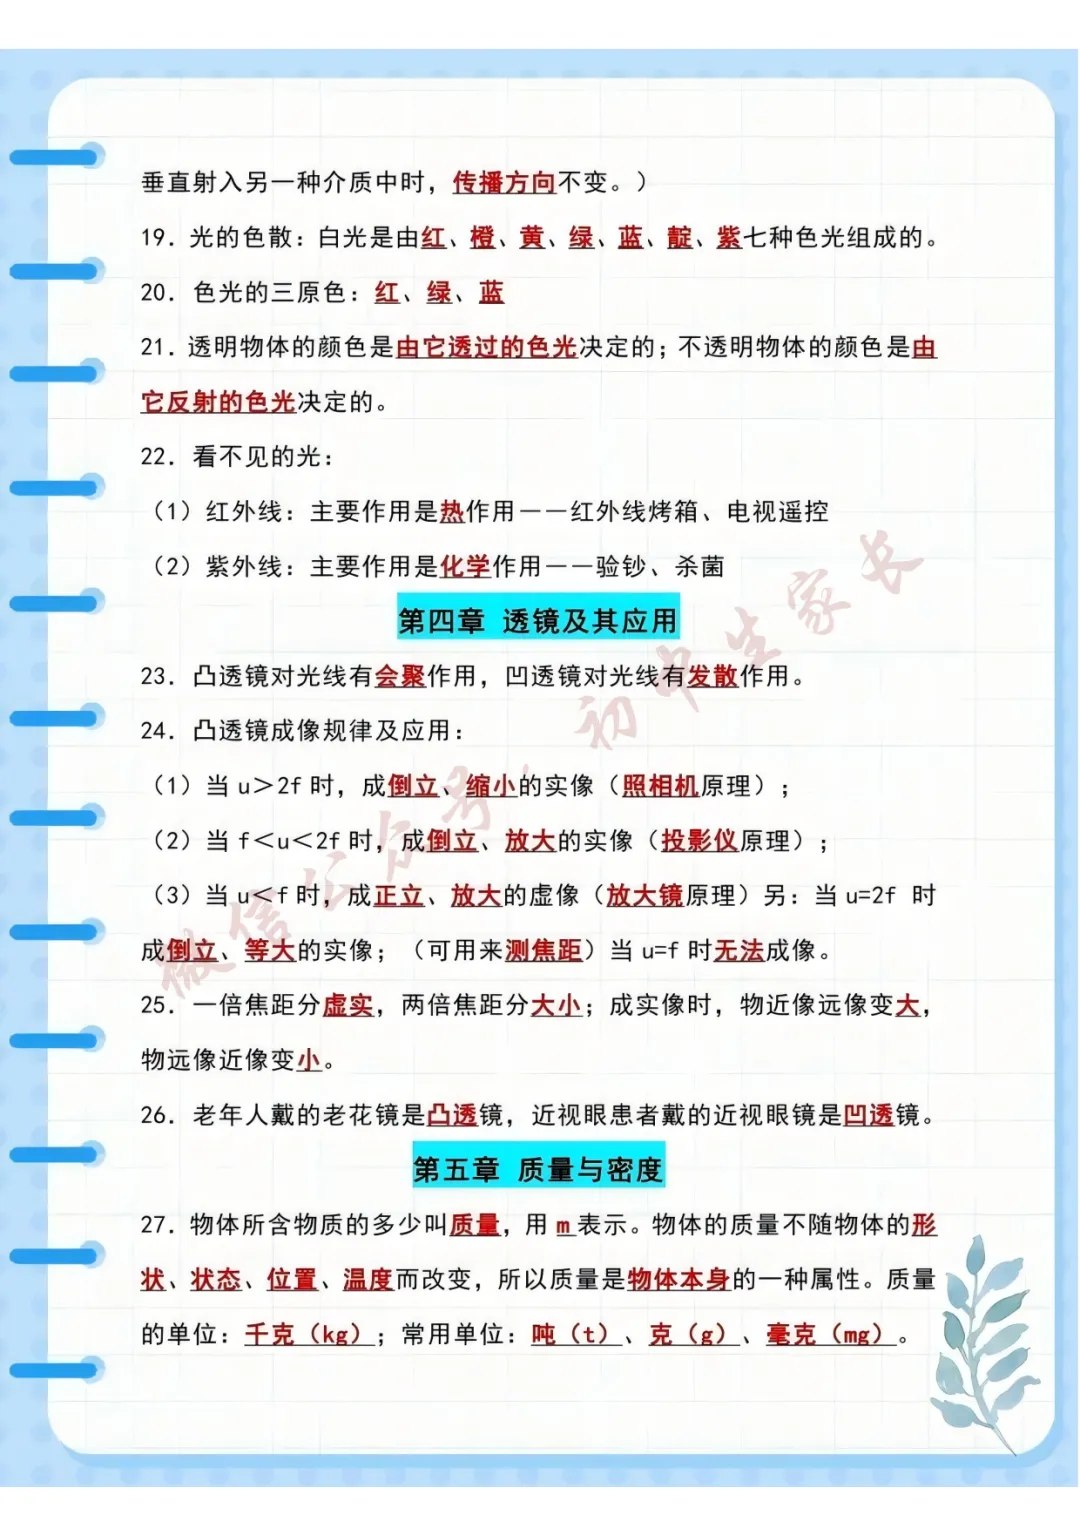 垂直射入另一种介质中时，传播方向不变。）
19．光的色散：白光是由红、橙、黄、绿、蓝、靛、紫七种色光组成的。
20．色光的三原色：红、绿、蓝
21．透明物体的颜色是由它透过的色光决定的；不透明物体的颜色是由
它反射的色光决定的。
22．看不见的光：
（1）红外线：主要作用是热作用——红外线烤箱、电视遥控
（2）紫外线：主要作用是化学作用——验钞、杀菌
第四章 透镜及其应用
23．凸透镜对光线有会聚作用，凹透镜对光线有发散作用。
24．凸透镜成像规律及应用：
（1）当 u＞2f 时，成倒立、缩小的实像（照相机原理）；
（2）当 f＜u＜2f 时，成倒立、放大的实像（投影仪原理）；
（3）当 u＜f 时，成正立、放大的虚像（放大镜原理）另：当 u=2f 时
成倒立、等大的实像；（可用来测焦距）当 u=f 时无法成像。
25．一倍焦距分虚实，两倍焦距分大小；成实像时，物近像远像变大，
物远像近像变小。
26．老年人戴的老花镜是凸透镜，近视眼患者戴的近视眼镜是凹透镜。
第五章 质量与密度
27．物体所含物质的多少叫质量，用 m 表示。物体的质量不随物体的形
状、状态、位置、温度而改变，所以质量是物体本身的一种属性。质量
的单位：千克（kg）；常用单位：吨（t）、克（g）、毫克（mg）。
微信公众号：初中生家长